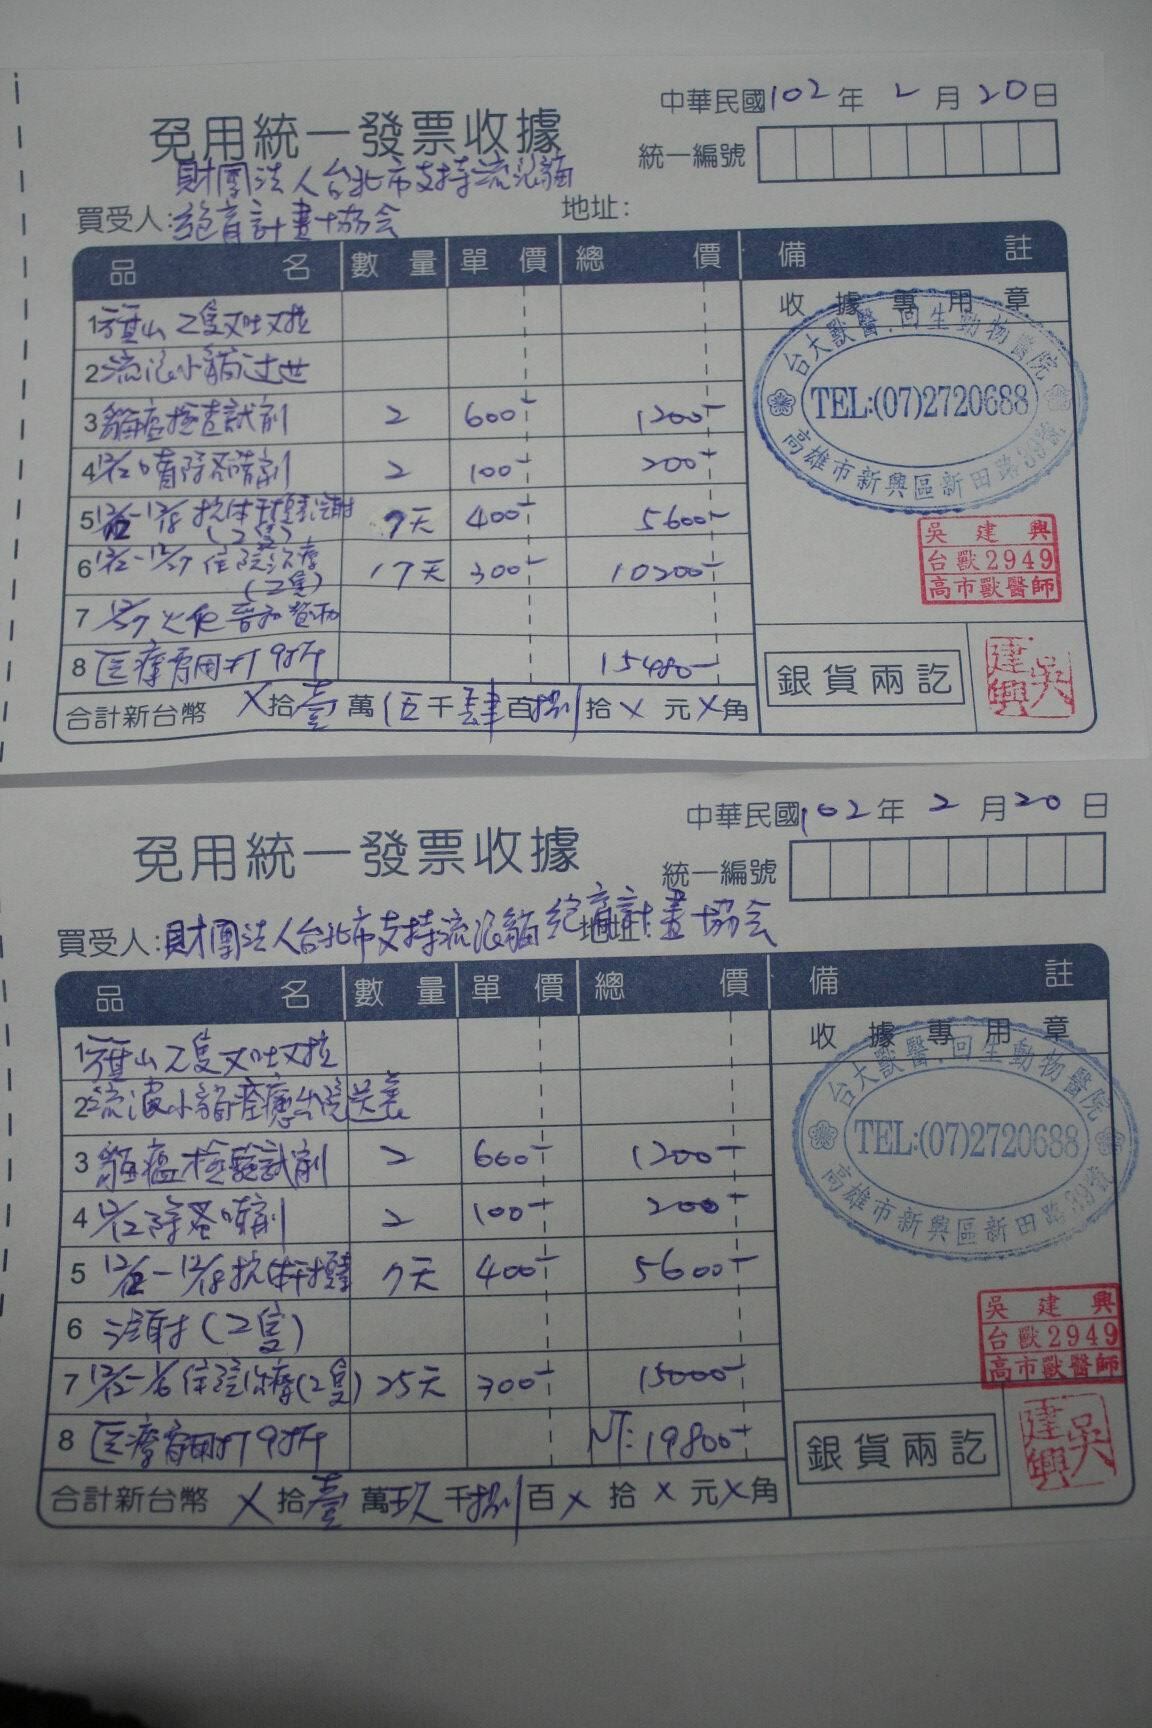 中華民國102年2月20日
免用統一發票收據
統一編號
財團法人台北市支持流浪貓
買受人:絕育計畫協会
地址:
品名 數量 單價 總價 備註
收據專用章
1 山2隻又吐又拉
2 流浪小貓过世
3 貓瘟檢查試劑 2 600- 1200-
4 12/2噴除蚤噴劑 2 100- 200-
5 12/2-12/8 抗体干擾素注射(2隻) 7天 400- 5600-
6 12/2-12/27 住院治療(2隻) 17天 300- 10200-
7
8 医療費用打9折 15480-
合計新台幣 X拾壹萬伍千肆百捌拾X元X角
台大獸醫.回生動物醫院
TEL:(07)2720688
高雄市新興區新田路39號
吳建興
台獸2949
高市獸醫師
銀貨兩訖
吳建興
中華民國102年2月20日
免用統一發票收據
統一編號
買受人:財團法人台北市支持流浪貓絕育計畫協会
地址:
品名 數量 單價 總價 備註
收據專用章
1 山2隻又吐又拉
2 流浪小貓痊癒出院送養
3 貓瘟檢驗試劑 2 600- 1200-
4 12/2除蚤噴劑 2 100- 200-
5 12/2-12/8抗体干擾 7天 400- 5600-
6 注射(2隻)
7 12/2-1/6住院治療(2隻) 25天 300- 15000-
8 医療費用打9折 NT:19800-
合計新台幣 X拾壹萬玖千捌百X拾X元X角
台大獸醫.回生動物醫院
TEL:(07)2720688
高雄市新興區新田路39號
吳建興
台獸2949
高市獸醫師
銀貨兩訖
吳建興